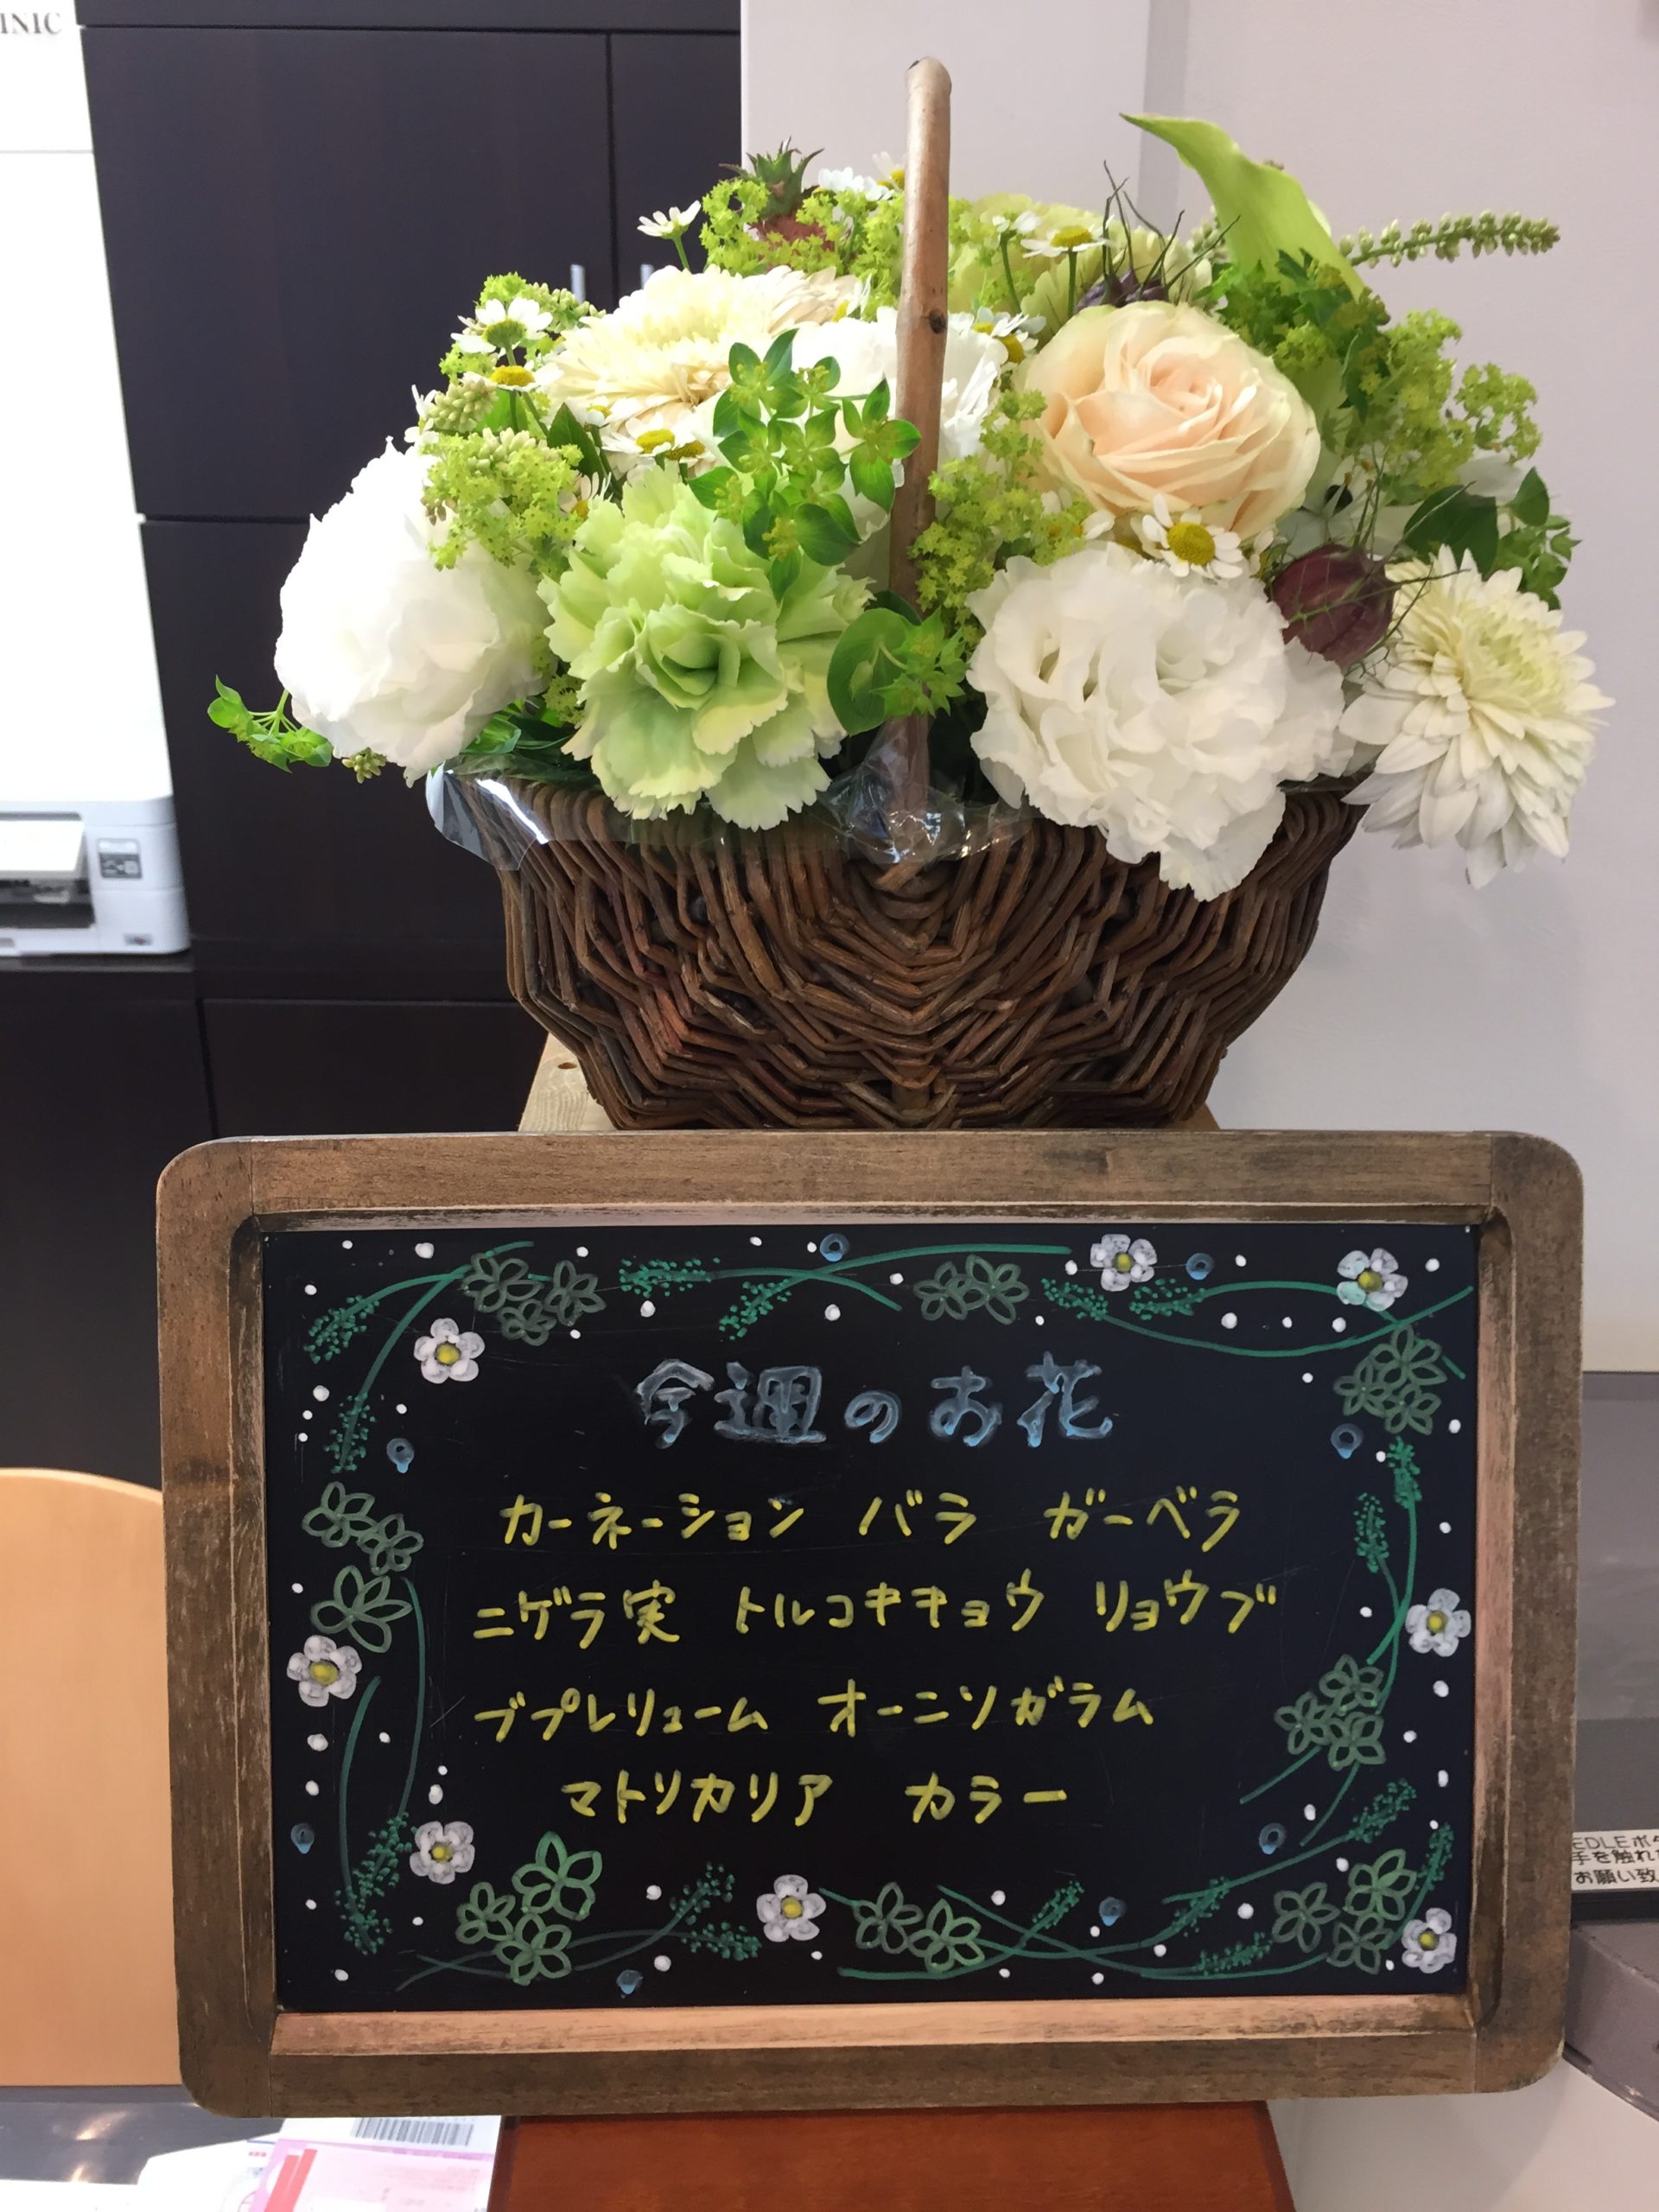 INIC
今週のお花
カーネーション バラ ガーベラ
ニゲラ実 トルコキキョウ リョウブ
ブプレリューム オーニソガラム
マトリカリア カラー
EDLEボタ
手を触れ
お願い致